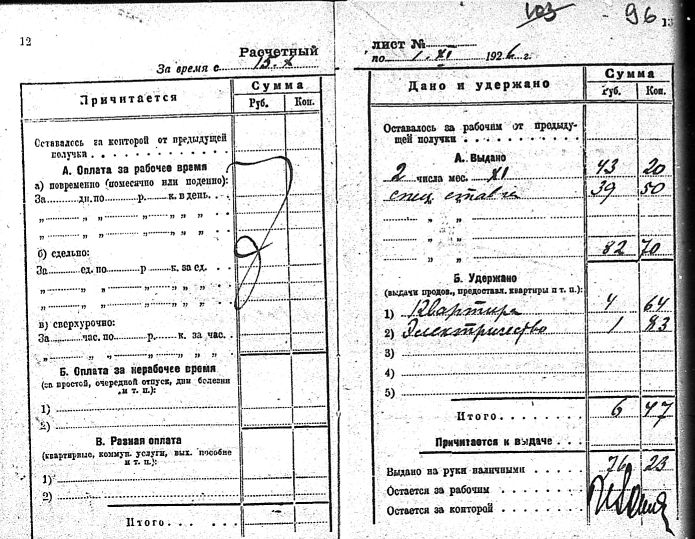 12
Расчетный
За время с 15. X
Причитается
Сумма
Руб. Коп.
Оставалось за конторой от предыдущей
получки
А. Оплата за рабочее время
а) повременно (помесячно или поденно):
За дн. по р. к. в день.
„ „ „ „ „ „ „
„ „ „ „ „ „ „
б) сдельно:
За ед. по р к. за ед.
„ „ „ „ „ „ „
„ „ „ „ „ „ „
в) сверхурочно:
За час. по р. к. за час.
„ „ „ „ „ „ „
Б. Оплата за нерабочее время
(за простой, очередной отпуск, дни болезни
и т. п.):
1)
2)
В. Разная оплата
(квартирные, коммун. услуги, вых. пособие
и т. п.):
1)
2)
Итого
103 96 13
лист №
по 1. XI 1926 г.
Дано и удержано
Сумма
Руб. Коп.
Оставалось за рабочим от предыду-
щей получки
А. Выдано
2 числа мес. XI 43 20
спец ставки 39 50
„ „ „
„ „ „
„ „ „ 82 70
Б. Удержано
(выдачи продов., предоставл. квартиры и т. п.):
1) Квартира 4 64
2) Электричество 1 83
3)
4)
5)
Итого 6 47
Причитается к выдаче
Выдано на руки наличными 76 23
Остается за рабочим
Остается за конторой